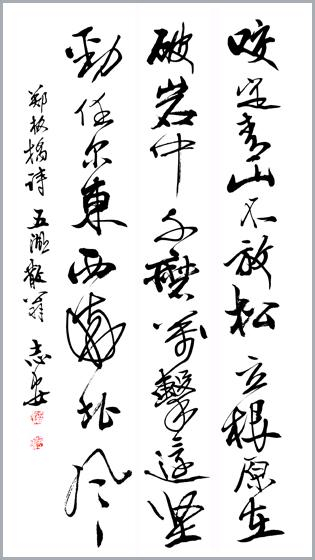 咬定青山不放松立根原在
破岩中千磨萬擊還坚
勁任尔東西南北风
郑板桥诗 五湖散翁 志安